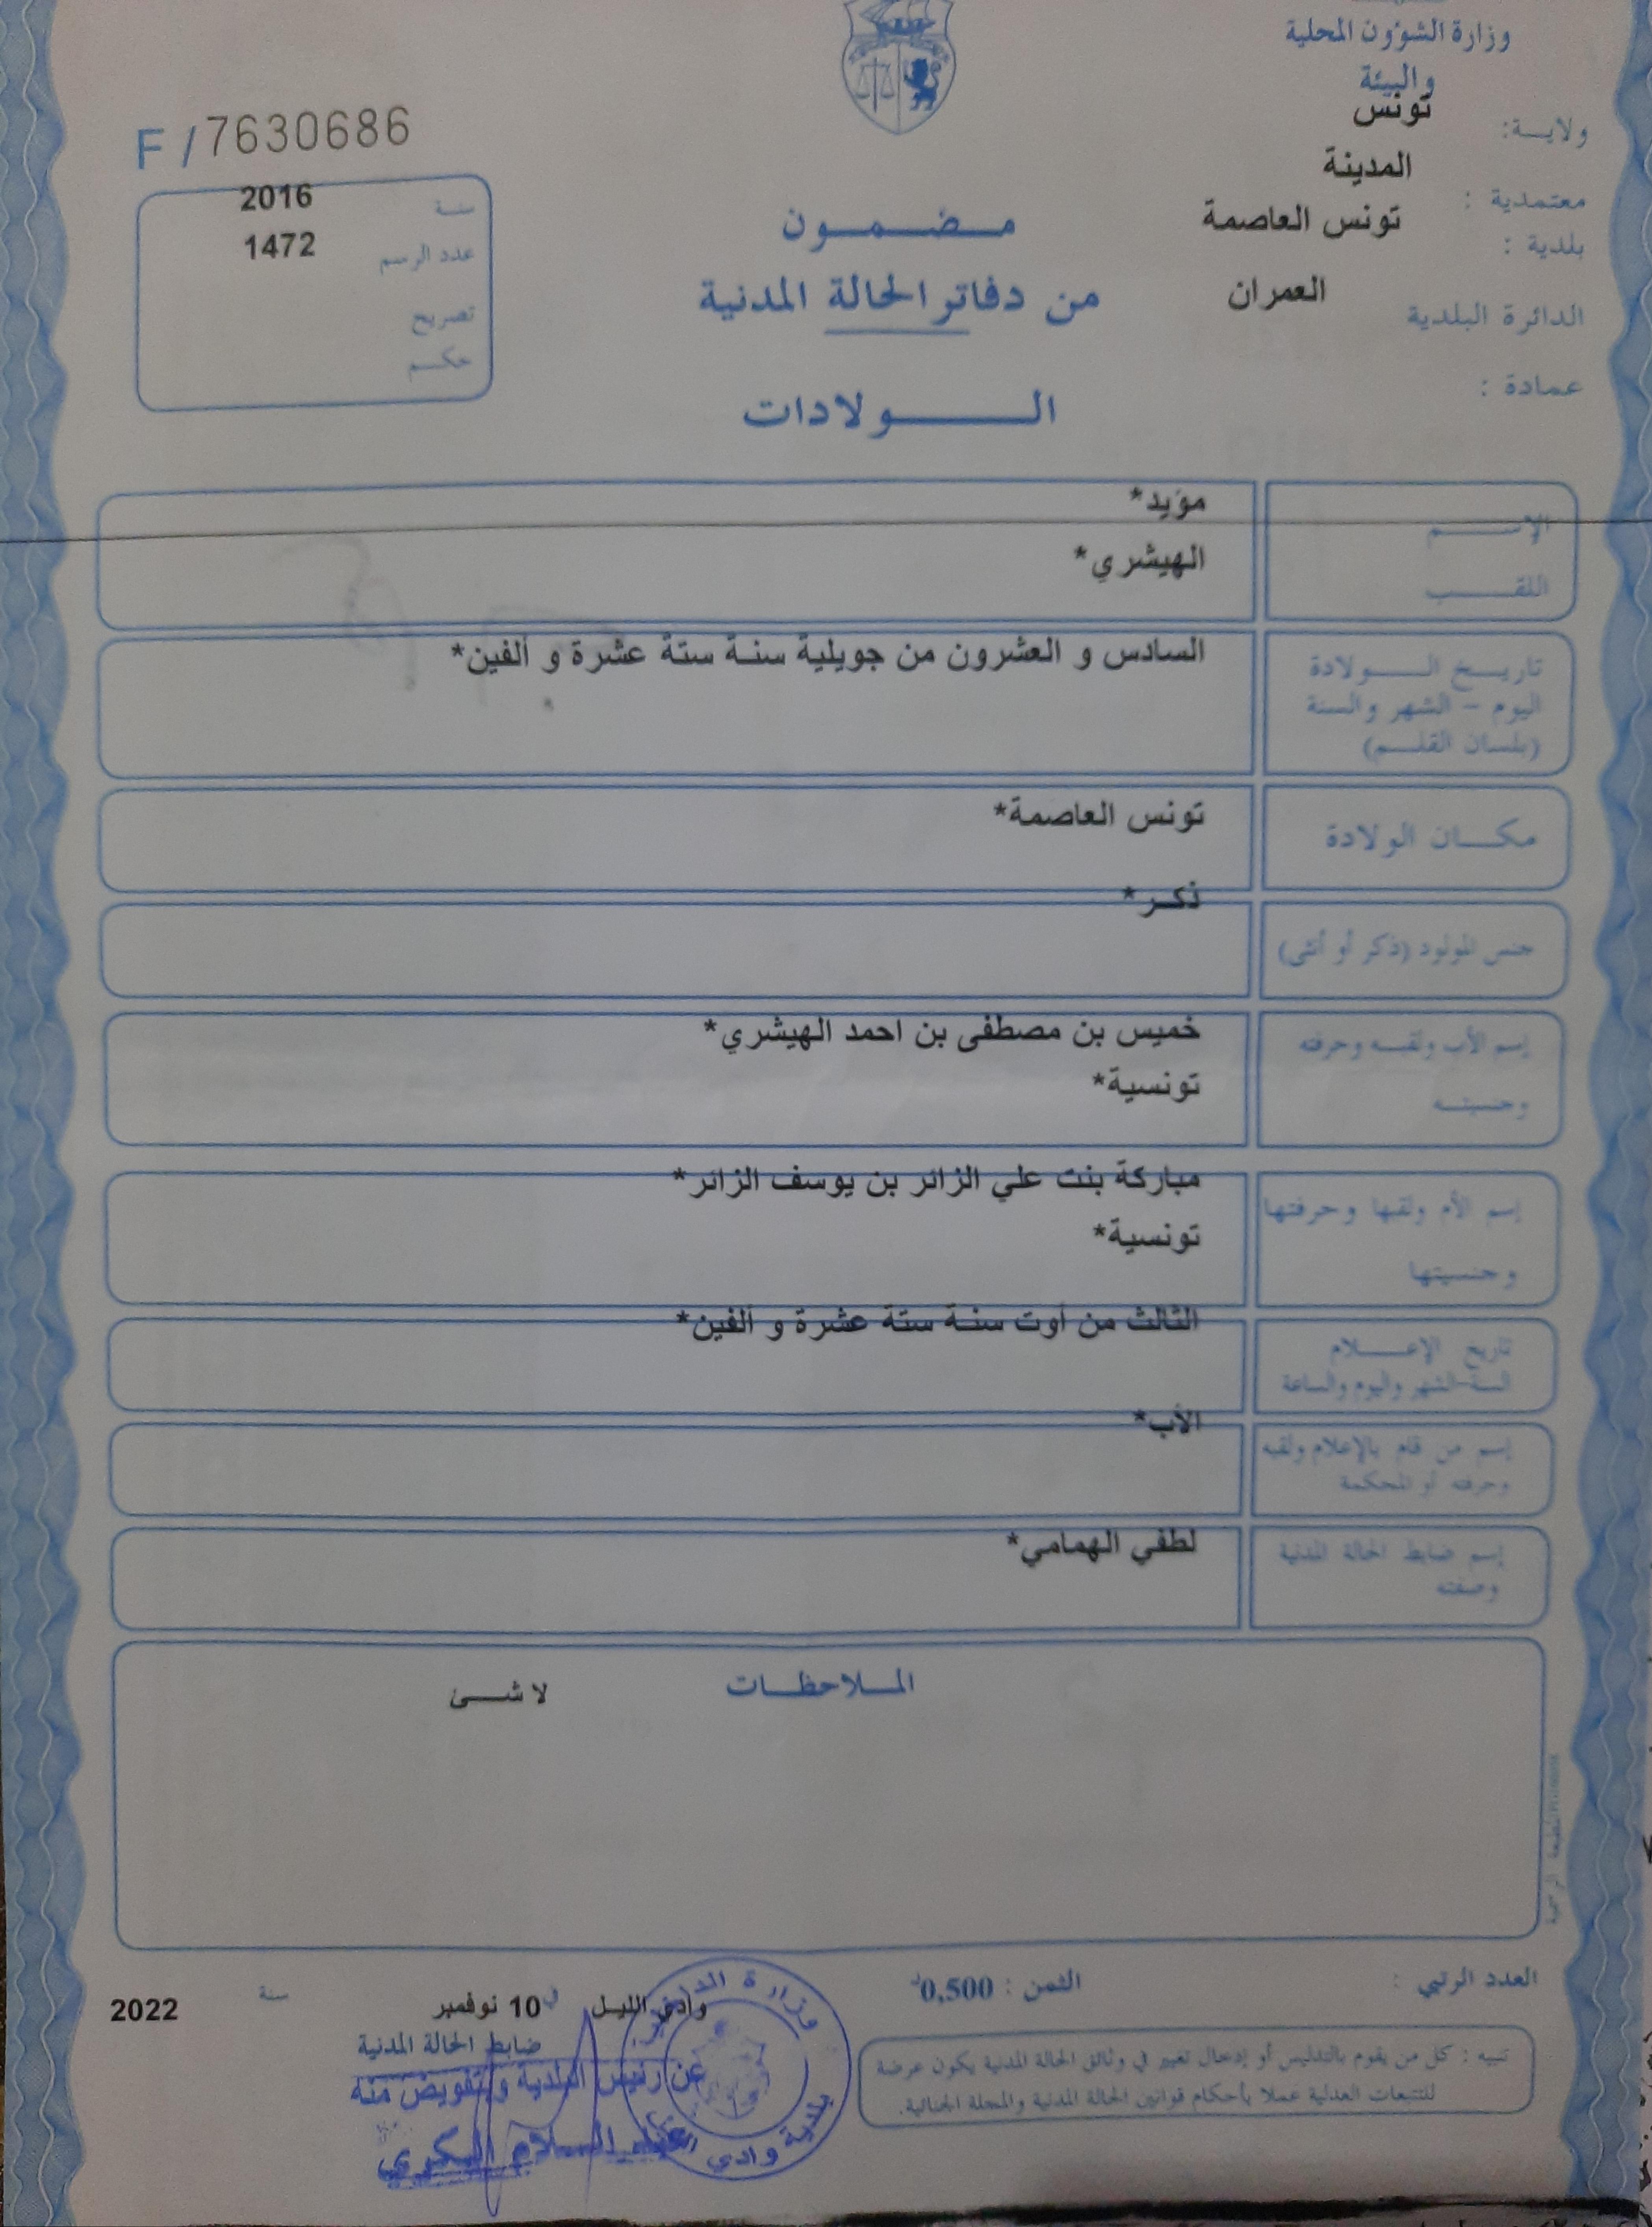 وزارة الشؤون المحلية
والبيئة
ولاية: تونس
معتمدية : المدينة
بلدية : تونس العاصمة
الدائرة البلدية العمران
عمادة :
F / 7630686
سنة 2016
عدد الرسم 1472
تصريح
حكم
مضمون
من دفاتر الحالة المدنية
الولادات
الإسم مؤيد*
اللقب الهيشري*
تاريخ الولادة السادس و العشرون من جويلية سنة ستة عشرة و ألفين*
اليوم - الشهر والسنة
(بلسان القلم)
مكان الولادة تونس العاصمة*
جنس المولود (ذكر أو أنثى) ذكر*
إسم الأب ولقبه وحرفته خميس بن مصطفى بن احمد الهيشري*
وجنسيته تونسية*
إسم الأم ولقبها وحرفتها مباركة بنت علي الزائر بن يوسف الزائر*
وجنسيتها تونسية*
تاريخ الإعلام الثالث من أوت سنة ستة عشرة و ألفين*
السنة-الشهر واليوم والساعة
إسم من قام بالإعلام ولقبه الأب*
وحرفته أو المحكمة
إسم ضابط الحالة المدنية لطفي الهمامي*
وصفته
الملاحظات لا شئ
العدد الرتبي :
الثمن : 0,500د
وادي الليل في 10 نوفمبر سنة 2022
ضابط الحالة المدنية
عن رئيس البلدية وبتفويض منه
عبد السلام البكري
وزارة الداخلية
بلدية وادي الليل
تنبيه : كل من يقوم بالتدليس أو إدخال تغيير في وثائق الحالة المدنية يكون عرضة
للتتبعات العدلية عملا بأحكام قوانين الحالة المدنية والمجلة الجنائية.